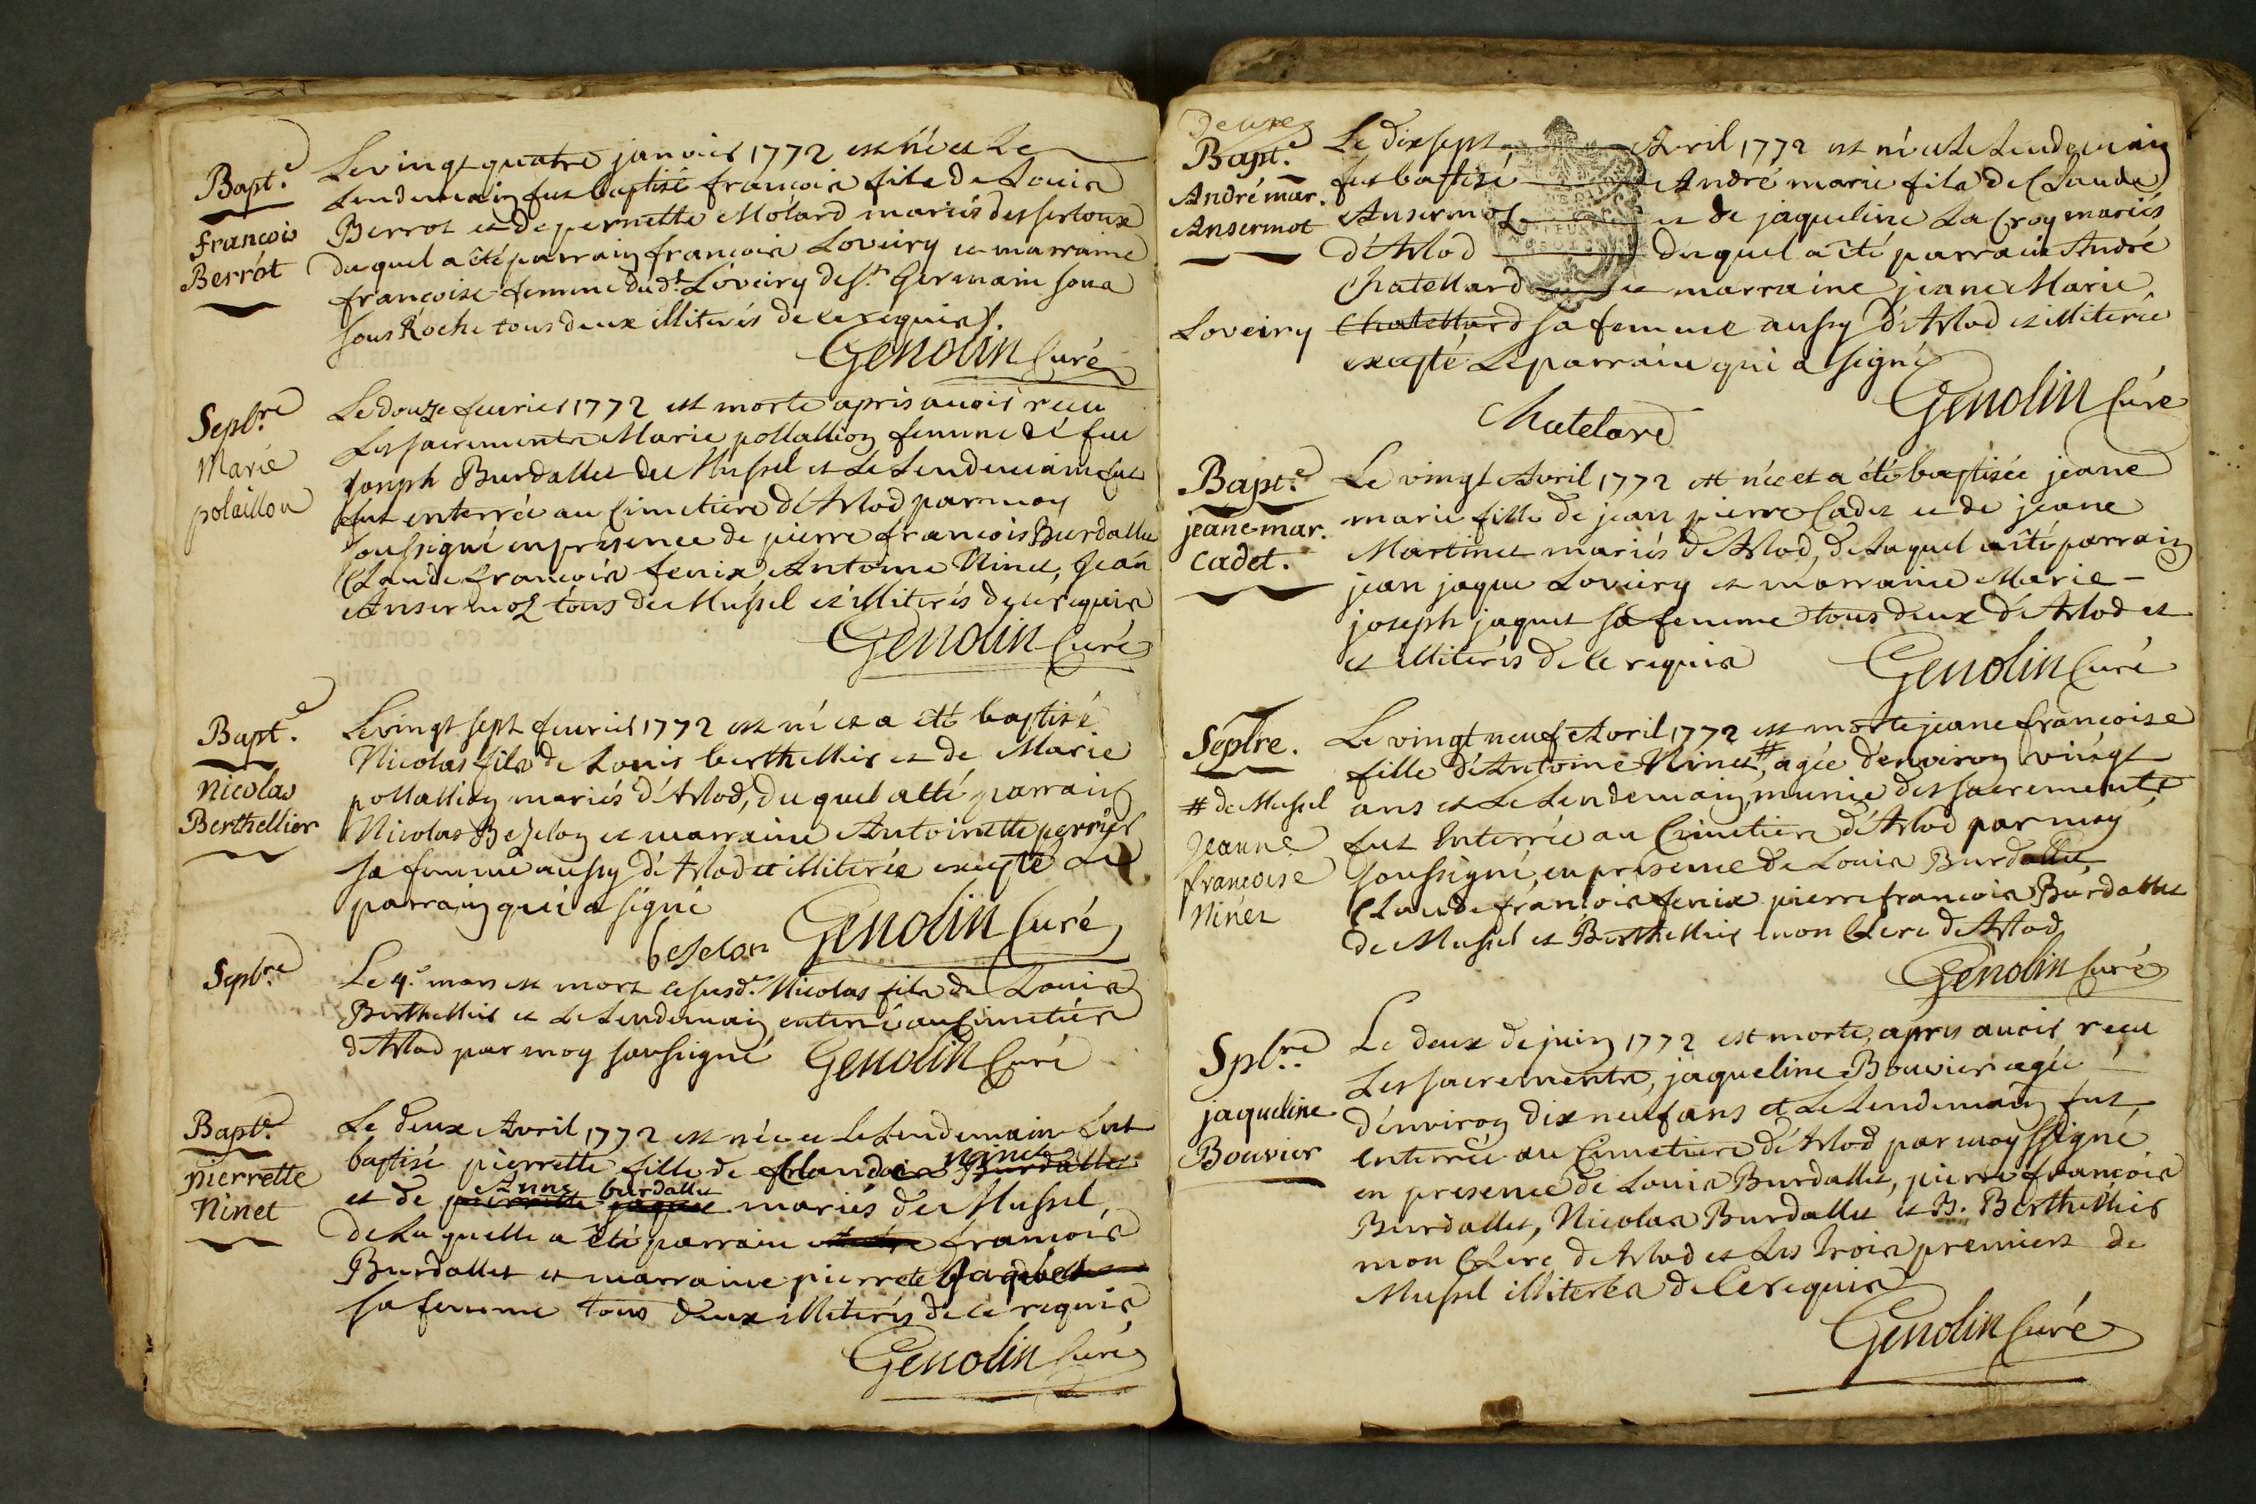 Bapt.e
françois
Berrót
Le vingt quatre janvier 1772 est né et Le
Lendemain fut baptisé françois fils de Louis
Berrot et de pernette Molard mariés des sertoux
duquel a été parrain françois Loveiry et marraine
françoise femme du d.t Loveiry de s.t Germain sous
sous Roche tous deux illiterés de ce requis.
Genolin Curé
Sepl.re
Marie
polaillon
Le douze fevrier 1772 est morte apris avoir recu
Les sacrements Marie pollallion femme dé feu
Joseph Burdallet de Mussel et Le Lendemain fut
fut enterrée au Cimetiere d'Arlod par moy
soussigné en presence de pierre francois Burdallet
Claude francois fenix, Antoine Ninet, Jean
Ansermoz tous de Mussel et illiterés de ce requis
Genolin Curé
Bapt.e
Nicolas
Berthellier
Le vingt sept fevrier 1772 est né et a etté baptisé
Nicolas fils de Louis berthellier et de Marie
pollallion mariés d'Arlod, du quel atté parrain
Nicolas Bezelon et marraine Antoinette
sa femme aussy d'Arlod et illiterée excepté Le
parrain qui a signé
beselon Genolin Curé
Sepl.re
Le 4.e mars est mort ce susd.t Nicolas fils de Louis
Berthellier et Le Lendemain enterré au Cimetiére
d'Arlod par moy soussigné Genolin Curé
Bapt.e
pierrette
Ninet
Le deux Avril 1772 est née et le Lendemain fut
baptisé pierrette fille de Burdallet
ninet
et de pierrette jaquet mariés de Mussel,
Anne burdallet
de Laquelle a été parrain francois
Burdallet et marraine pierrete
sa femme tous deux illiterés de ce requis
Genolin Curé
Deuxe
Bapt.e
André mar.
Ansermot
Loveiry
Le dix sept Avril 1772 est né et le Lendemain
fut baptisé André marie fils de Claude
Ansermoz et de jaqueline La Croy mariés
d'Arlod duquel a été parrain André
Chatellard et marraine jeane Marie
Chatellard sa femme aussy d'Arlod et illiterée
excepté Le parrain qui a signé
Chatelard Genolin Curé
Bapt.e
jeane-mar.
cadet.
Le vingt Avril 1772 est née et a été baptisée jeane
marie fille de jean pierre Cadet et de jeane
Martinet mariés d'Arlod, de Laquel a été parrain
jean jaque Loveiry et marraine Marie -
joseph jaquet sa femme tous deux d'Arlod et
et illiterés de ce requis Genolin Curé
Seplre.
# de Mussel
Jeanne
françoise
Ninet
Le vingt neuf Avril 1772 est morte jeane francoise
fille d'Antoine Ninet #, agée d'environ vingt
ans et Le Lendemain, munie des sacrements
fut Enterrée au Cimetiere d'Arlod par moy
soussigné, en presence de Louis Burdallet,
Claude francois fenix pierre francois Burdallet
de Mussel et Berthellier mon Clerc d'Arlod
Genolin Curé
Spl.re
jaqueline
Bouvier
Le deux de juin 1772 est morte, apris avoir recu
Les sacrements, jaqueline Bouvier agée
d'environ dix neuf ans et Le Lendemain fut
enterrée au Cimetiere d'Arlod par moy ssigné
en presence de Louis Burdallet, pierre francois
Burdallet, Nicolas Burdallet et B. Berthellier
mon Clerc d'Arlod et Les trois premiers de
Mussel illiterés de ce requis
Genolin Curé